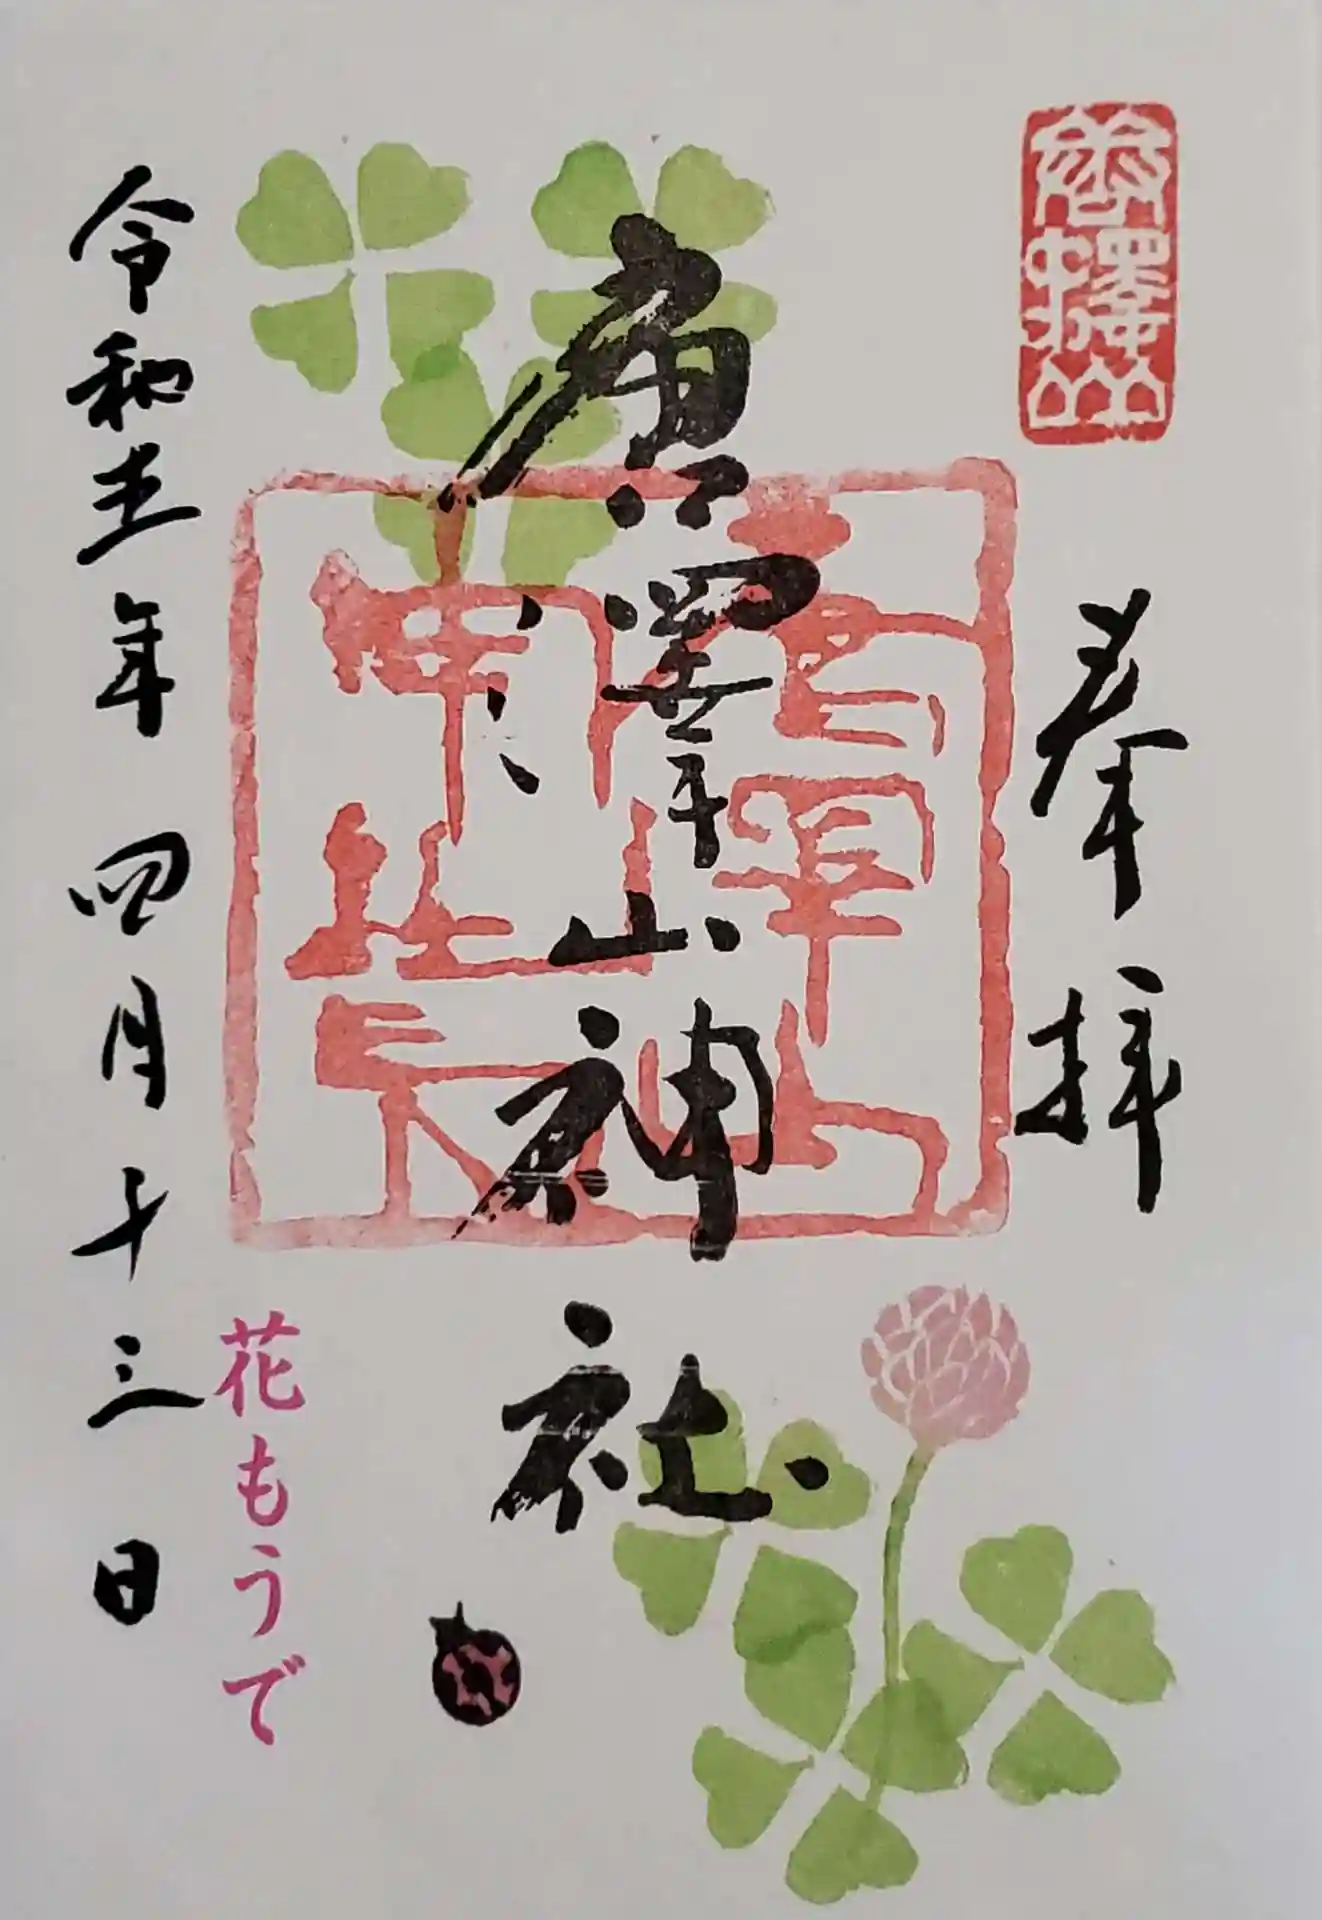 唐澤山
奉拝
唐澤山神社
花もうで
令和五年四月十三日